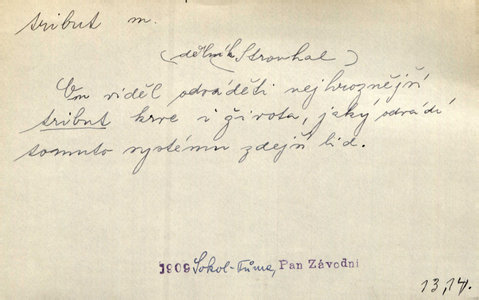 tribut m.
(dělník Strouhal)
On viděl odváděti nejhroznější
tribut krve i života, jaký odvádí
tomuto systému zdejší lid.
1909 Sokol-Tůma, Pan Závodní
13,14.